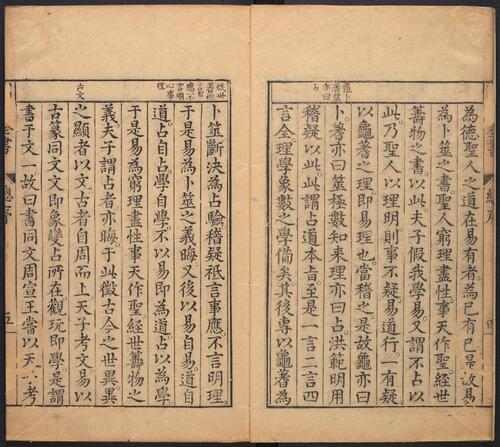 龜卜
蓍筮
亦曰
占
為德聖人之道在易有者為已有已是故易
為卜筮之書聖人窮理盡性事天作聖經世
籌物之書以此夫子假我學易又謂不占以
此乃聖人以理明則事不疑易道行一有疑
以龜蓍之理即易理也當稽之是故龜亦曰
卜蓍亦曰筮極數知來理亦曰占洪範明用
稽疑以此此謂占道本旨至是一言二言四
言全理學象數之學備矣其後專以龜蓍為
應不
言明
心事
理
卜筮斷決為占驗稽疑祇言事應不言明理
于是易為卜筮之義晦又後以易自易道自
道占自占學自學不以易即為道占以為學
于是易為窮理盡性事天作聖經世籌物之
古文
義夫子謂占者亦晦于此徵古今之世異異
之顯者以文古者自周而上天子考文易以
古篆同文文即象變占所在觀玩即學是謂
書于文一故曰書同文周宣王嘗以天下考
全書
總序
五